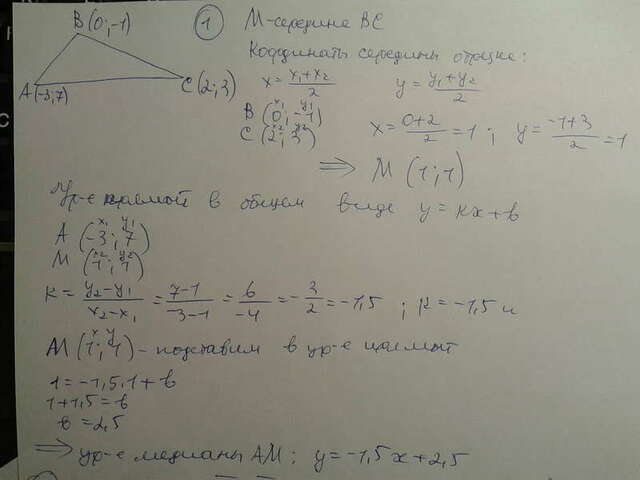 B(0;-1)
A(-3;7)
C(2;3)
① M-середина BC
Координаты середины отрезка:
x = (x₁+x₂)/2 y = (y₁+y₂)/2
x₁ y₁
B (0;-1)
x₂ y₂
C (2;3)
x = (0+2)/2 = 1; y = (-1+3)/2 = 1
⇒ M (1;1)
Ур-е прямой в общем виде y = kx+b
x₁ y₁
A (-3;7)
x₂ y₂
M (1;1)
k = (y₂-y₁)/(x₂-x₁) = (7-1)/(-3-1) = 6/-4 = -3/2 = -1,5 ; k = -1,5 и
x y
M (1;1) - подставим в ур-е прямой
1 = -1,5·1+b
1+1,5 = b
b = 2,5
⇒ ур-е медианы AM: y = -1,5x+2,5